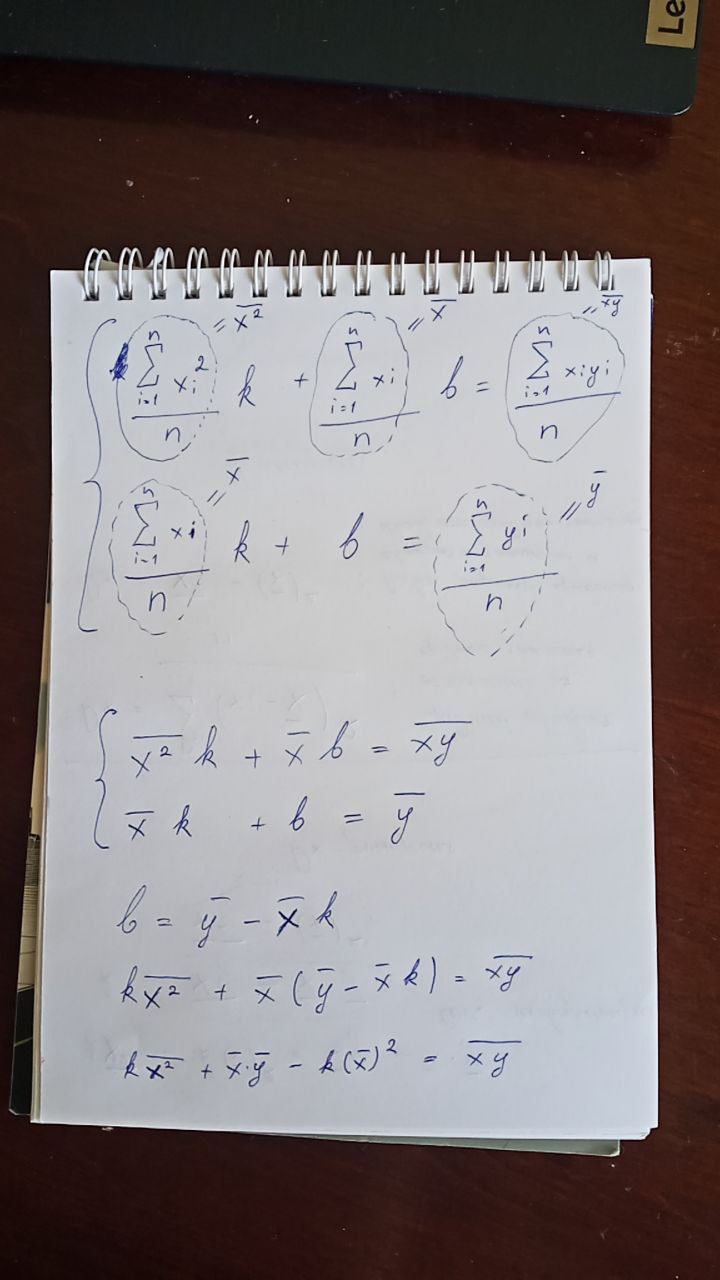 Le
{ (∑_{i=1}^{n} x_i^2)/n = \overline{x^2} k + (∑_{i=1}^{n} x_i)/n = \overline{x} b = (∑_{i=1}^{n} x_i y_i)/n = \overline{xy}
(∑_{i=1}^{n} x_i)/n = \overline{x} k + b = (∑_{i=1}^{n} y_i)/n = \overline{y}
{ \overline{x^2} k + \overline{x} b = \overline{xy}
\overline{x} k + b = \overline{y}
b = \overline{y} - \overline{x} k
k \overline{x^2} + \overline{x} (\overline{y} - \overline{x} k) = \overline{xy}
k \overline{x^2} + \overline{x} · \overline{y} - k (\overline{x})^2 = \overline{xy}